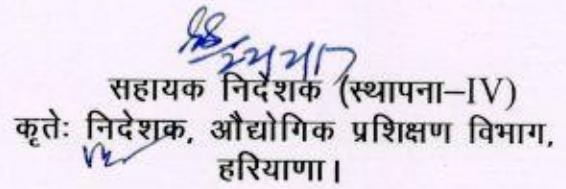 सहायक निदेशक (स्थापना–IV)
कृतेः निदेशक, औद्योगिक प्रशिक्षण विभाग,
हरियाणा।